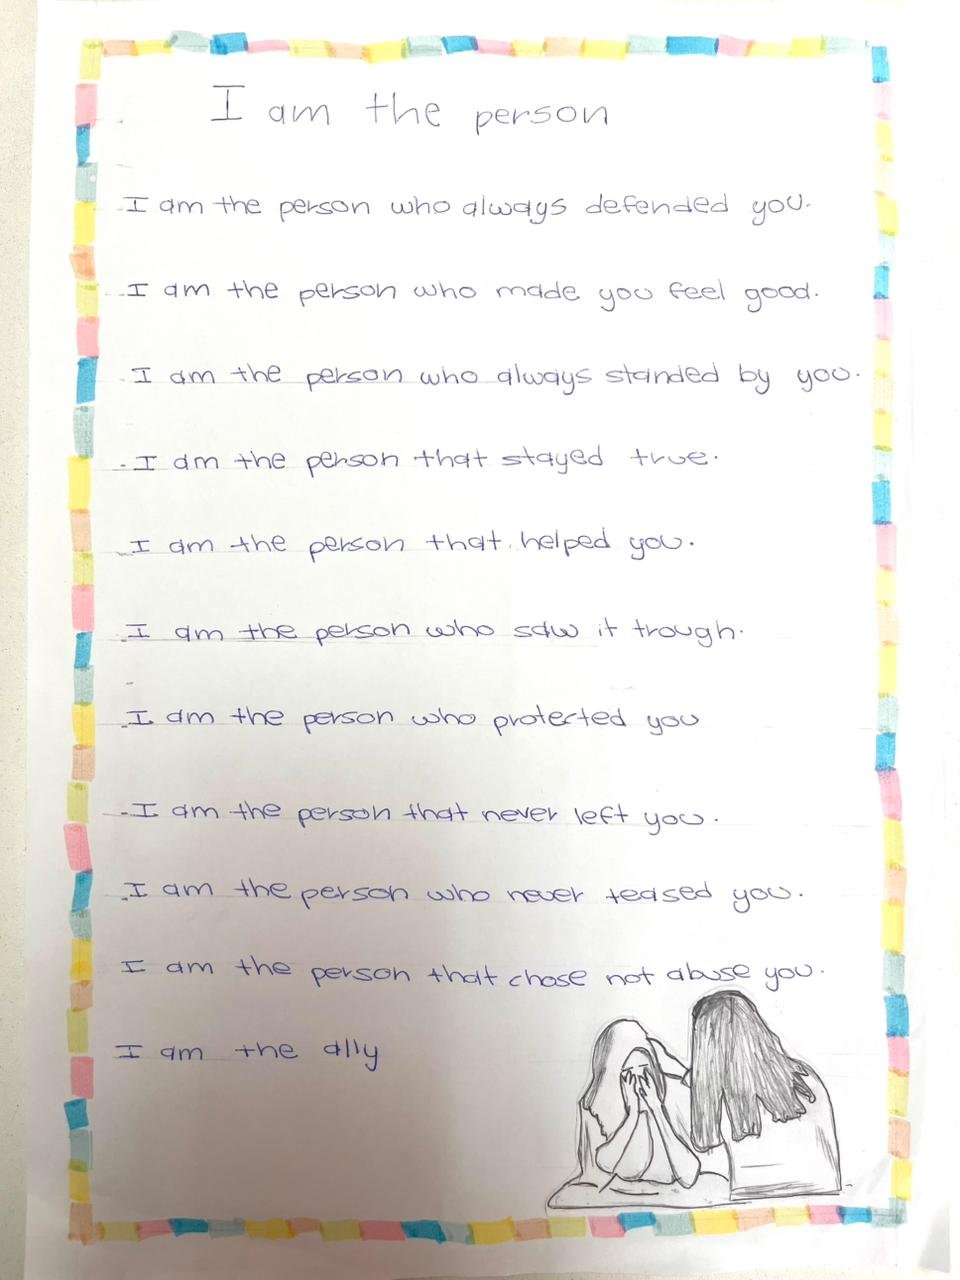 I am the person
I am the person who always defended you.
I am the person who made you feel good.
I am the person who always standed by you.
I am the person that stayed true.
I am the person that helped you.
I am the person who saw it trough.
I am the person who protected you
I am the person that never left you.
I am the person who never teased you.
I am the person that chose not abuse you.
I am the ally